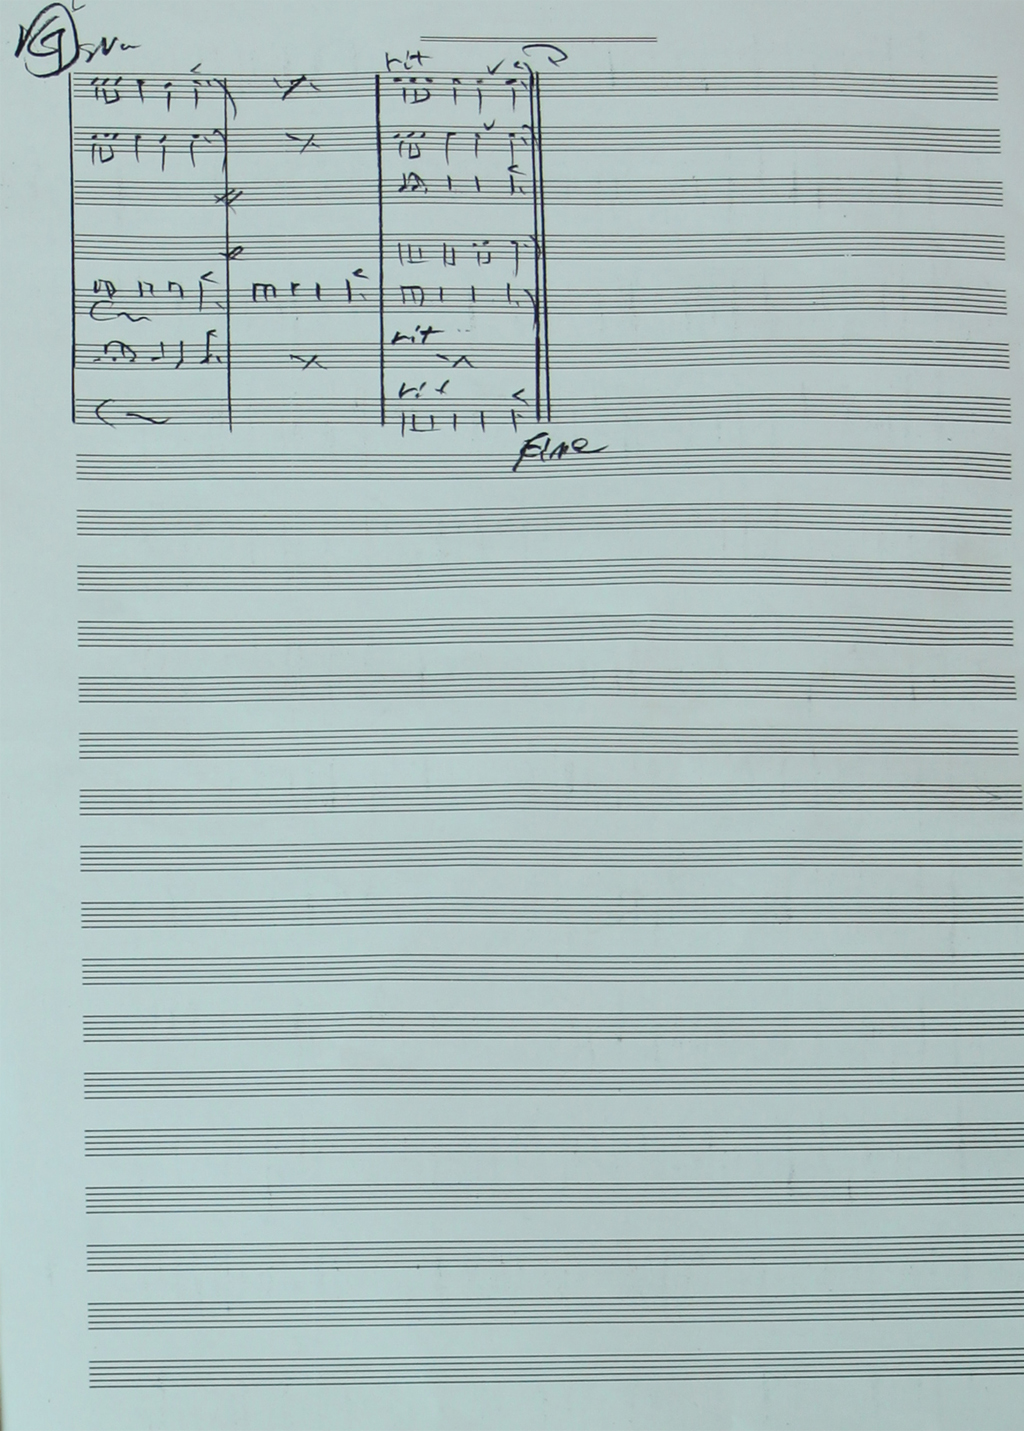 G 8va
rit
rit
rit
Fine